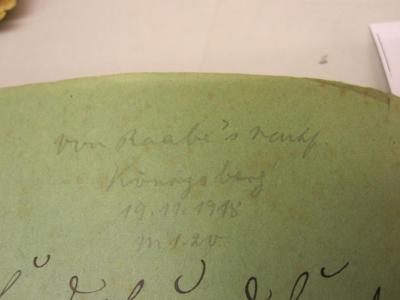 von Raabe's Nachf.
Königsberg
19.11.1918
M 1.20